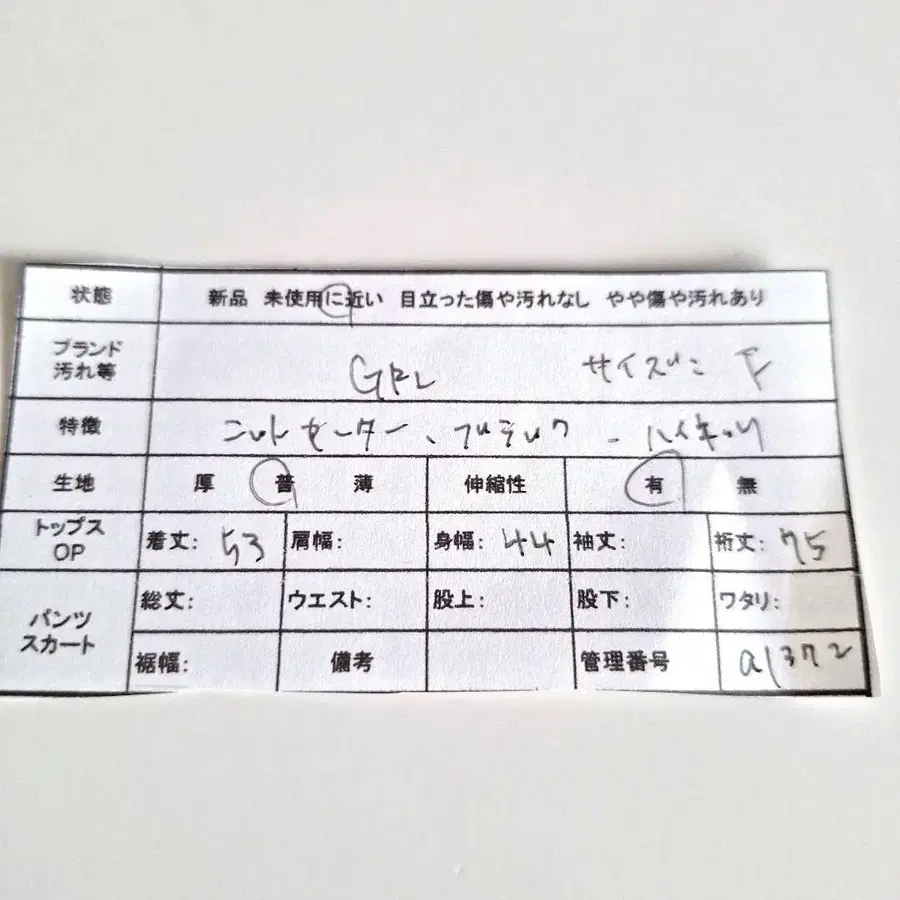 状態 新品 未使用に近い 目立った傷や汚れなし やや傷や汚れあり
ブランド
汚れ等 GRL サイズ: F
特徴 ニットセーター、ブラック、ハイネック
生地 厚 普 薄 伸縮性 有 無
トップス
OP 着丈: 53 肩幅: 身幅: 44 袖丈: 裄丈: 75
パンツ
スカート 総丈: ウエスト: 股上: 股下: ワタリ:
裾幅: 備考 管理番号 a1372